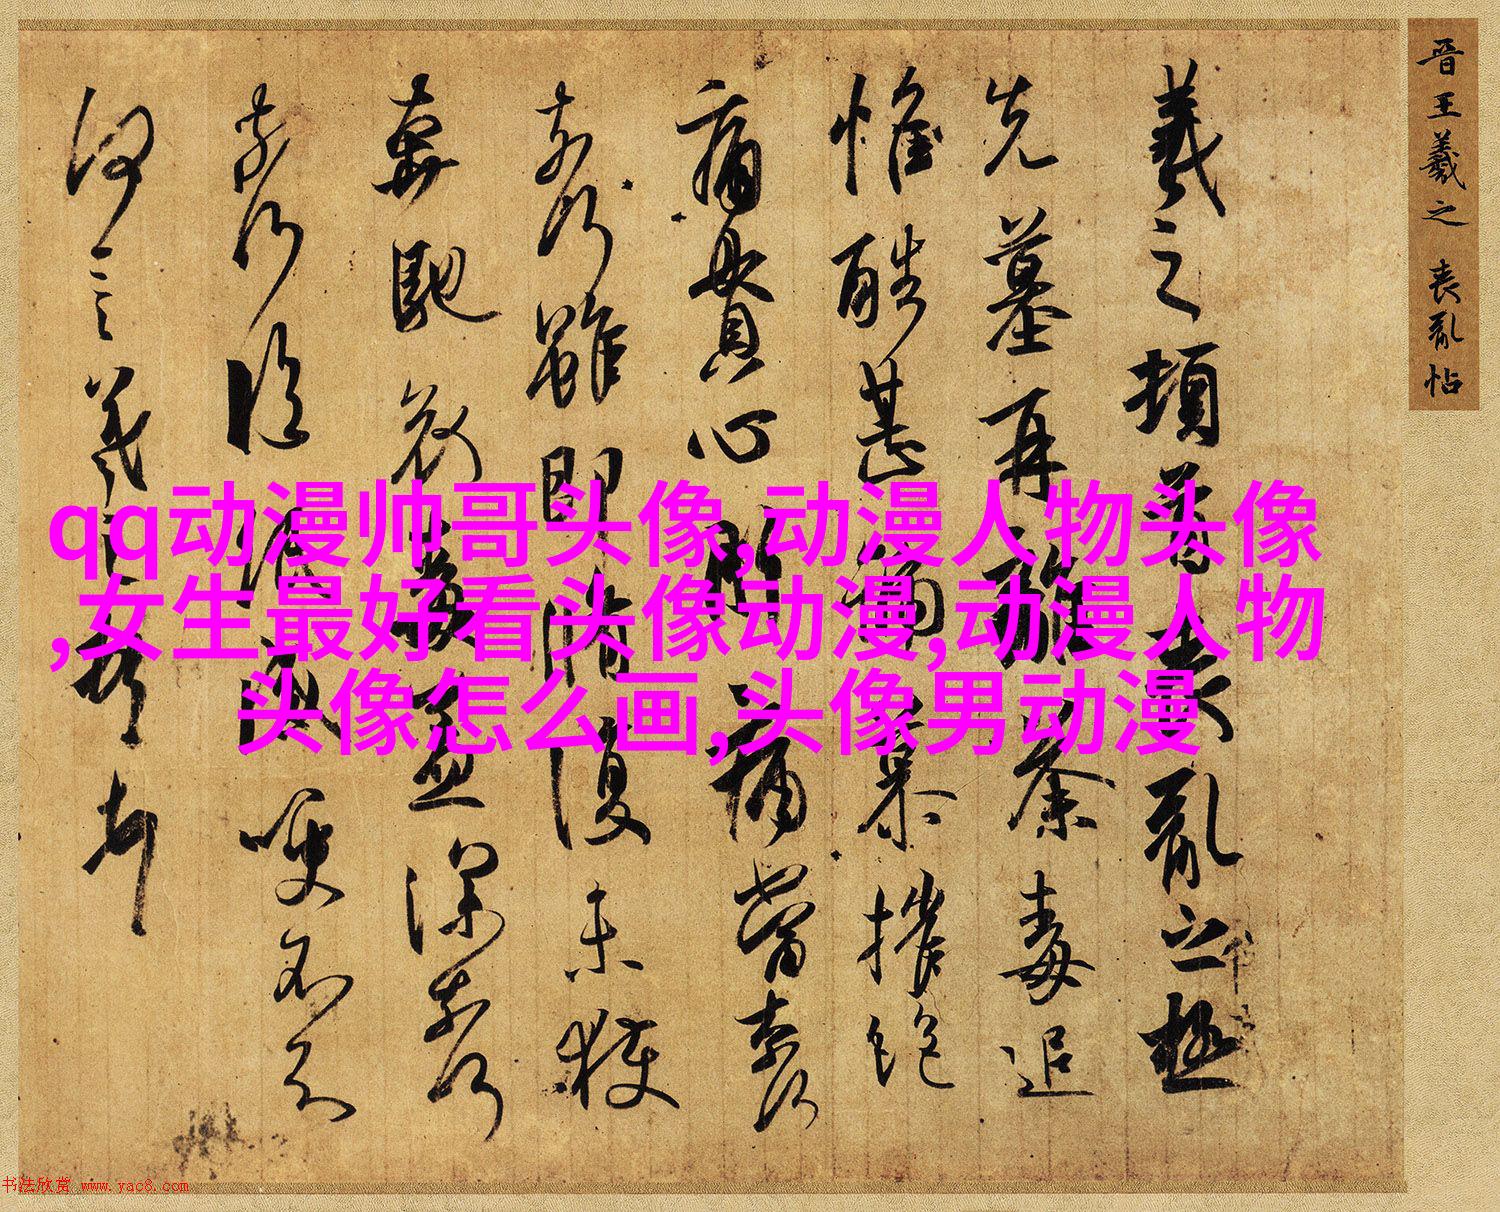 晋王羲之 丧乱帖
羲之頓首喪亂之極
先墓再離荼毒追
惟酷甚號慕摧絕
痛貫心肝痛當奈何
奈何雖即脩復未獲
奔馳哀毒益深奈何
奈何臨紙感哽不知
何言羲之頓首頓首
qq动漫帅哥头像,动漫人物头像
,女生最好看头像动漫,动漫人物
头像怎么画,头像男动漫
书法欣赏 www.yac8.com